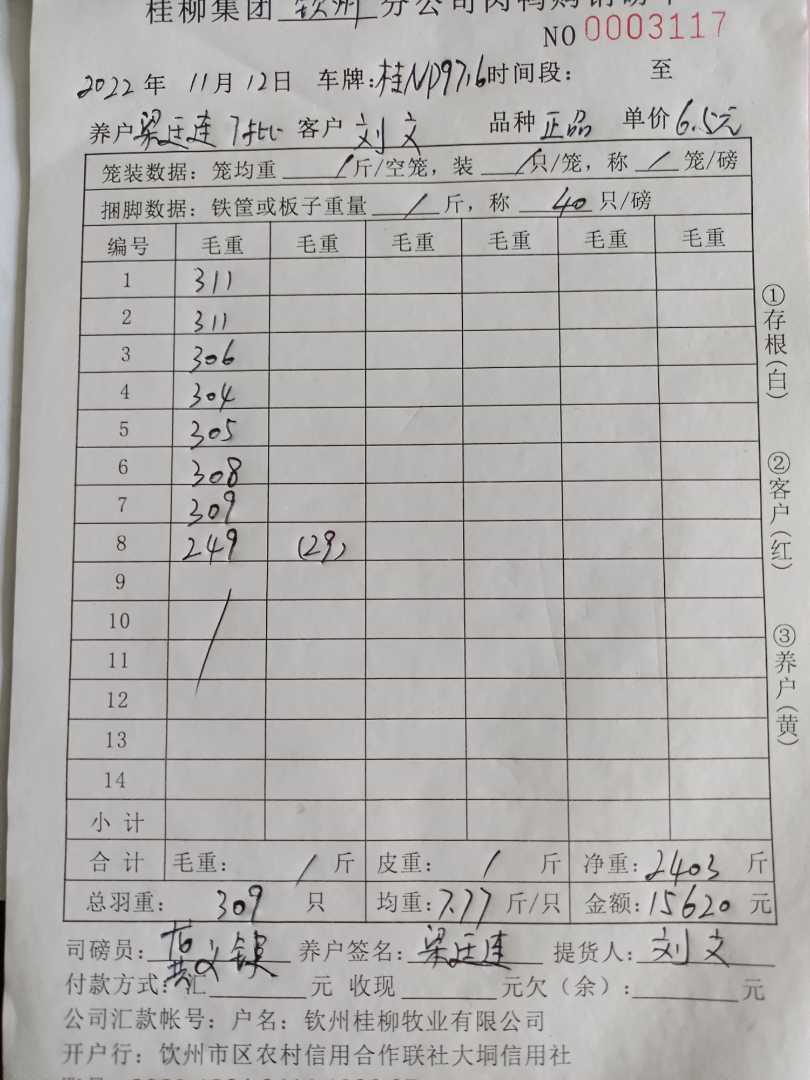 桂柳集团 钦州 分公司肉鸭购销磅单
NO 0003117
2022年 11月 12日 车牌:桂ND97,6时间段: 至
养户 梁廷连 客户 刘文 品种 正品 单价 6.5元
笼装数据: 笼均重 / 斤/空笼, 装 / 只/笼, 称 / 笼/磅
捆脚数据: 铁筐或板子重量 / 斤, 称 40 只/磅
编号 毛重 毛重 毛重 毛重 毛重 毛重
1 311
2 311
3 306
4 304
5 305
6 308
7 309
8 249 (29)
9
10
11
12
13
14
小计
合计 毛重: / 斤 皮重: / 斤 净重: 2403 斤
总羽重: 309 只 均重: 7.77 斤/只 金额: 15620 元
司磅员: 养户签名: 梁廷连 提货人: 刘文
付款方式: 汇 元 收现 元欠(余): 元
公司汇款帐号: 户名: 钦州桂柳牧业有限公司
开户行: 钦州市区农村信用合作联社大垌信用社
①存根(白)
②客户(红)
③养户(黄)